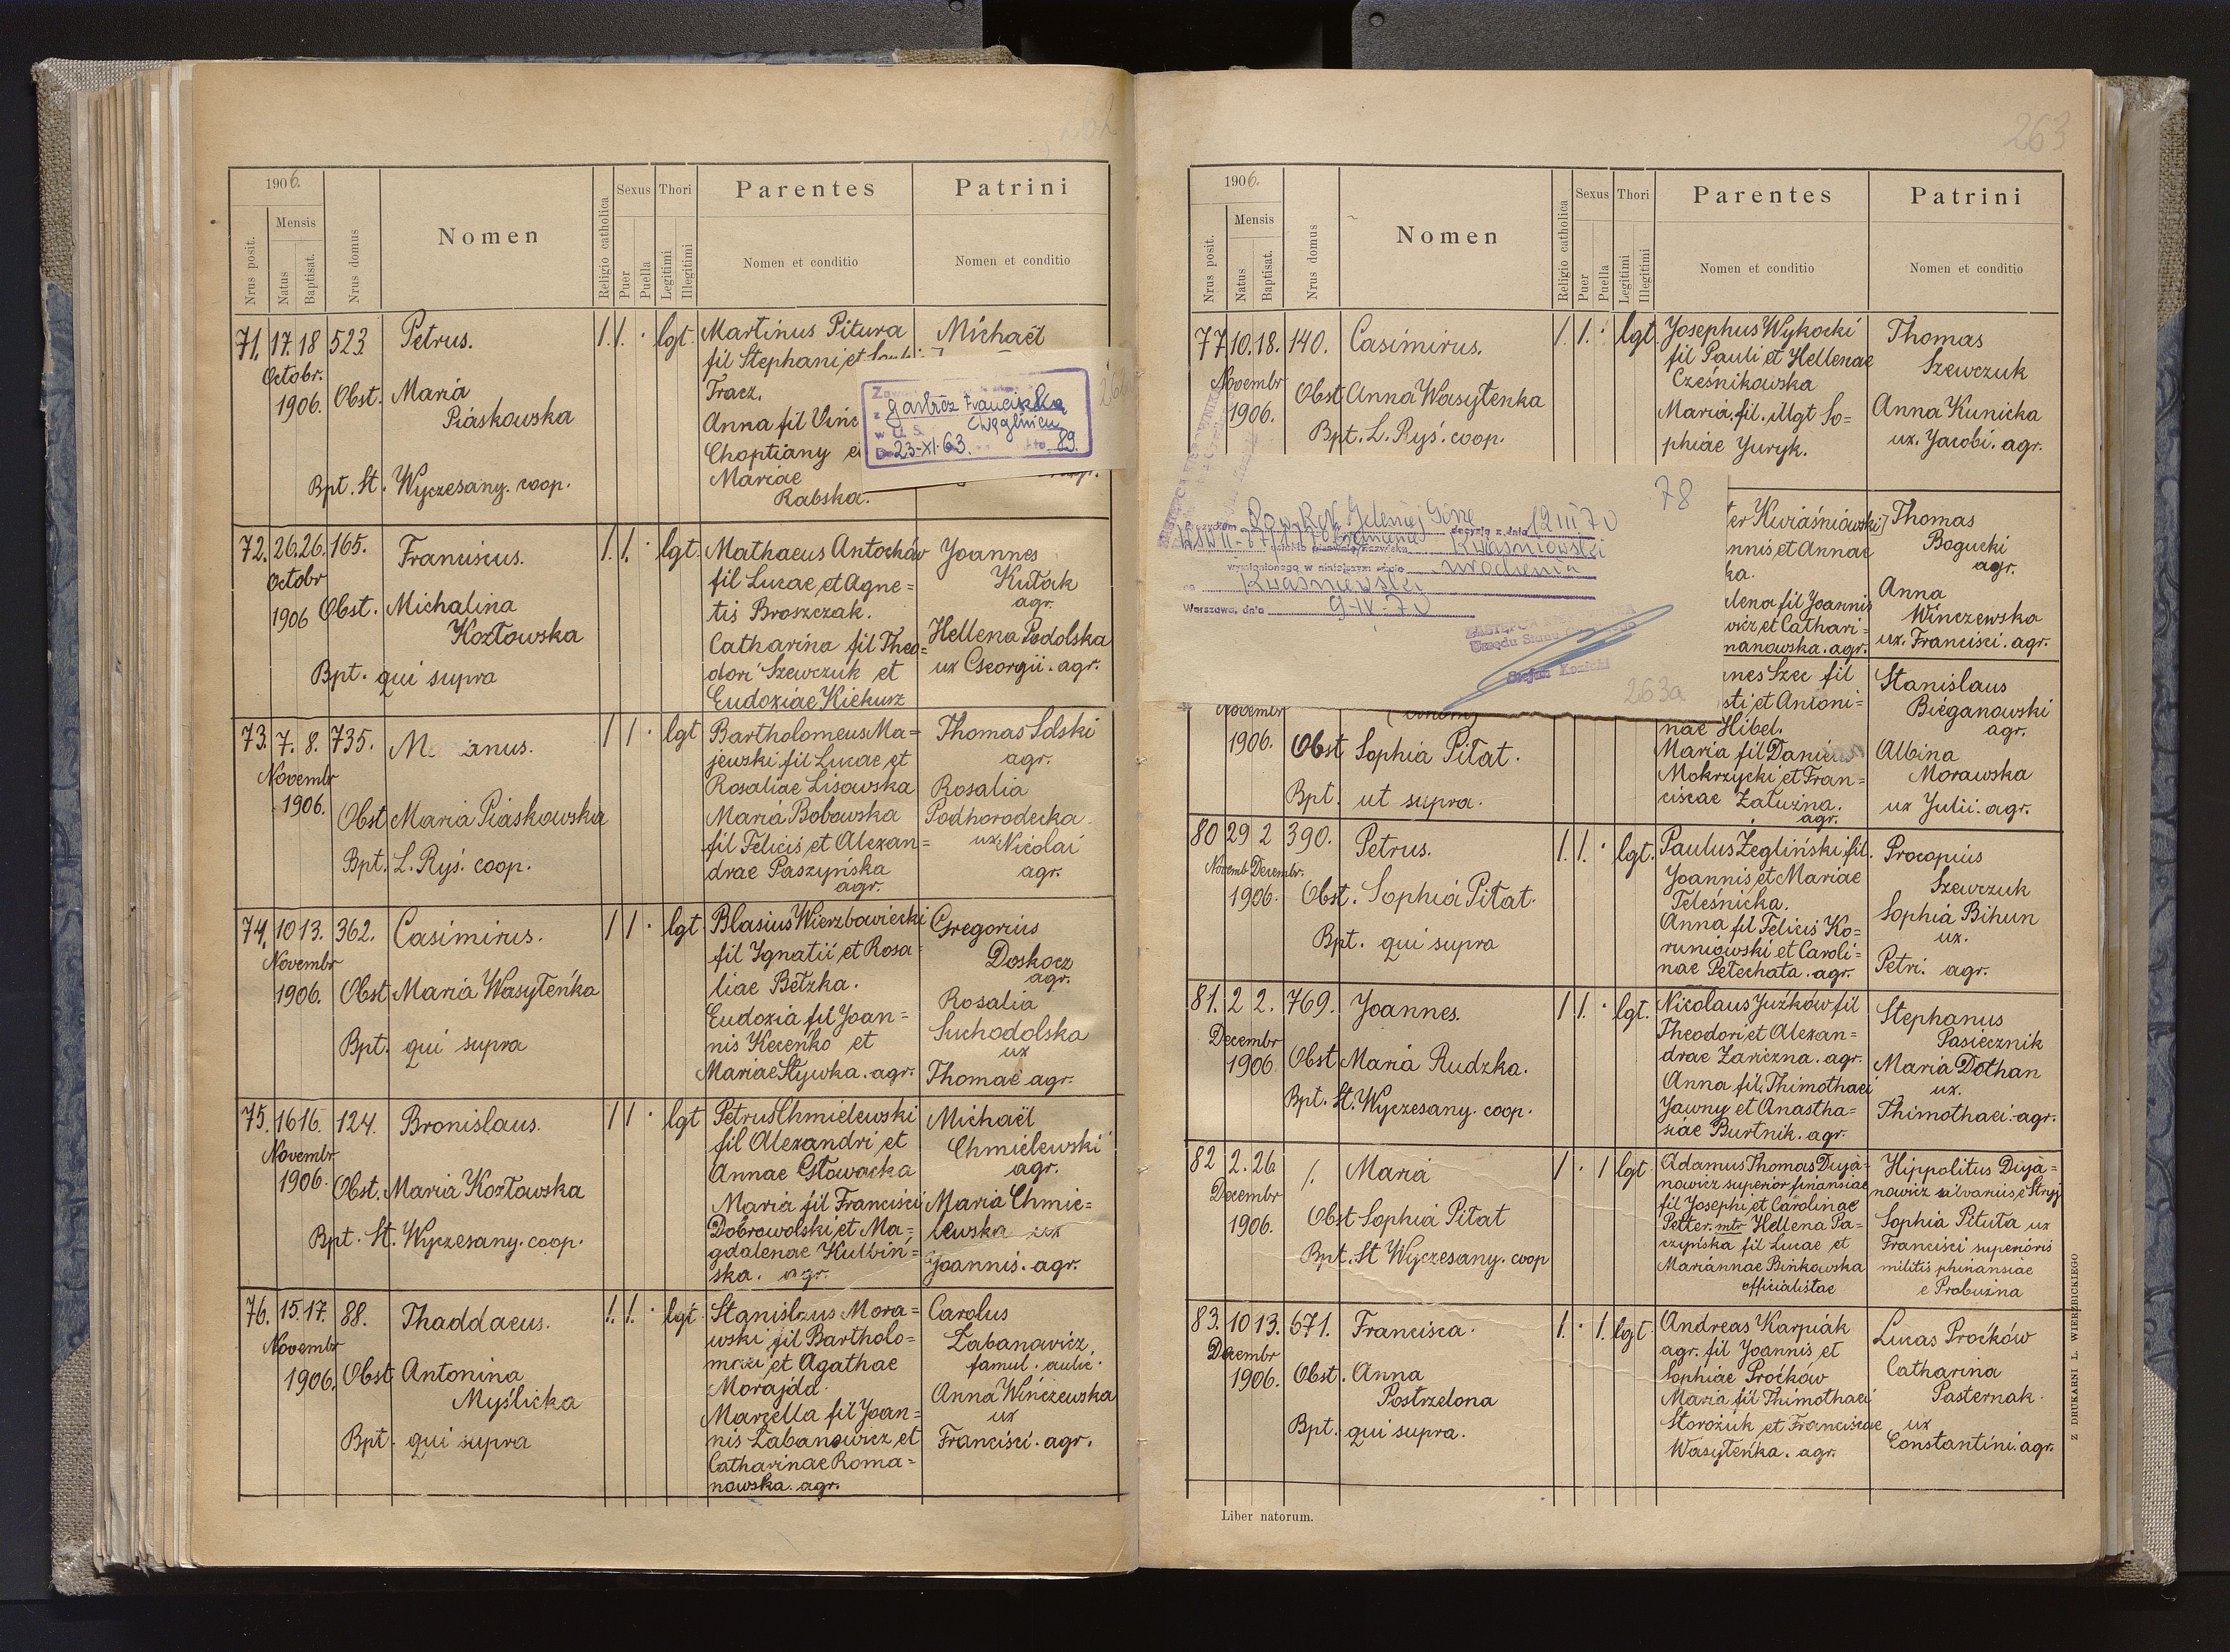 1906.
Nrus posit.
Mensis
Natus
Baptisat.
Nrus domus
Nomen
Religio catholica
Sexus
Puer
Puella
Thori
Legitimi
Illegitimi
Parentes
Nomen et conditio
Patrini
Nomen et conditio
71. 17. 18 523. Petrus. 1. 1. · lgt.
Octobr.
1906. Obst. Maria
Piaskowska
Bpt. St. Wyczesany. coop.
Martinus Pitura
fil Stephani et
Tracz.
Anna fil Vinc
Choptiany e
Mariae
Rabska.
Michaël
23-XI-63. 89.
72. 26. 26. 165. Franciscus. 1. 1. · lgt.
Octobr
1906 Obst. Michalina
Kozłowska
Bpt. qui supra
Mathaeus Antochów
fil Lucae et Agne=
tis Broszczak.
Catharina fil Theo=
dori Szewczuk et
Eudoxiae Kiekurz
Joannes
Kułak
agr.
Hellena Podolska
ux Georgii. agr.
73. 7. 8. 735. M anus. 1 1 · lgt
Novembr
1906. Obst Maria Piaskowska
Bpt. L. Ryś. coop.
Bartholomeus Ma=
jewski fil Lucae et
Rosaliae Lisowska
Maria Bobowska
fil Felicis et Alexan=
drae Paszyńska
agr.
Thomas Solski
agr.
Rosalia
Podhorodecka
ux Nicolai
agr.
74. 10 13. 362. Casimirus. 1 1 · lgt
Novembr
1906. Obst Maria Wasyleńka
Bpt. qui supra
Blasius Wierzbowiecki
fil Ignatii et Rosa=
liae Bełzka.
Eudoxia fil Joan=
nis Kecenko et
Mariae Stywka. agr.
Gregorius
Doskocz
agr.
Rosalia
Suchodolska
ux
Thomae agr.
75. 16 16. 124. Bronislaus. 1 1 · lgt
Novembr
1906. Obst. Maria Kozłowska
Bpt. St. Wyczesany. coop.
Petrus Chmielewski
fil Alexandri et
Annae Głowacka
Maria fil Francisci
Dobrowolski et Ma=
gdalenae Kulbiń=
ska. agr.
Michaël
Chmielewski
agr.
Maria Chmie=
lewska ux
Joannis. agr.
76. 15. 17. 88. Thaddaeus. 1. 1. · lgt
Novembr
1906. Obst Antonina
Myślicka
Bpt. qui supra
Stanislaus Mora=
wski fil Bartholo=
maei et Agathae
Morajda.
Marcella fil Joan=
nis Łabanowicz et
Catharinae Roma=
nowska. agr.
Carolus
Łabanowicz
famul. aulic.
Anna Winczewska
ux
Francisci. agr.
263
1906.
Nrus posit.
Mensis
Natus
Baptisat.
Nrus domus
Nomen
Religio catholica
Sexus
Puer
Puella
Thori
Legitimi
Illegitimi
Parentes
Nomen et conditio
Patrini
Nomen et conditio
77 10. 18. 140. Casimirus. 1. 1. · lgt.
Novembr
1906. Obst Anna Wasylenka
Bpt. L. Ryś. coop.
Josephus Wykocki
fil Pauli et Hellenae
Cześnikowska
Maria. fil. Mgt So=
phiae Juryk.
Thomas
Szewczuk
Anna Kunicka
ux. Jacobi. agr.
78
Jeleniej Górze decyzją z dnia 12 III 70
Kwaśniowski
wymienionego w niniejszym akcie urodzenia
na Kwaśniewski
Warszawa, dnia 9-IV-70
ZASTĘPCA
Urzędu Stanu
Stefan Konicki
263a
ter Kwiaśniowski
nnis et Annae
ka.
lena fil Joannis
wicz et Cathari=
manowska. agr.
Thomas
Bogucki
agr.
Anna
Winczewska
ux. Francisci. agr.
Novembr
1906. Obst Sophia Piłat.
Bpt. ut supra.
nnes Szec fil
sti et Antoni=
nae Hibel.
Maria fil
Mokrzycki et Fran=
ciscae Załuzna.
agr.
Stanislaus
Bieganowski
agr.
Albina
Morawska
ux Julii. agr.
80 29 2 390. Petrus. 1. 1. · lgt.
Novemb Decembr.
1906. Obst. Sophia Piłat.
Bpt. qui supra
Paulus Żegliński fil.
Joannis et Mariae
Teleśnicka.
Anna fil Felicis Ko=
runiowski et Caroli=
nae Petechata. agr.
Procopius
Szewczuk
Sophia Bihun
ux.
Petri. agr.
81. 2 2. 769. Joannes. 1 1. · lgt.
Decembr
1906. Obst Maria Rudzka.
Bpt. St. Wyczesany. coop.
Nicolaus Juzków fil
Theodori et Alexan=
drae Zariczna. agr.
Anna fil. Thimothaei
Jawny et Anastha=
siae Burtnik. agr.
Stephanus
Pasiecznik
Maria Dołhan
ux.
Thimothaei. agr.
82 2. 26 /. Maria 1 · 1 lgt
Decembr
1906. Obst Sophia Piłat
Bpt. St Wyczesany. coop
Adamus Thomas Duja=
nowicz superior finansiae
fil Josephi et Carolinae
Petter. mtr Hellena Pa=
czyńska fil Lucae et
Mariannae Binkowska
officialistae
Hippolitus Duja=
nowicz silvarius e Stryj
Sophia Pituta ux
Francisci superioris
militis phinansiae
e Probuzna
83. 10 13. 671. Francisca. 1. · 1. lgt.
Decembr
1906. Obst. Anna
Postrzelona
Bpt. qui supra.
Andreas Karpiak
agr. fil Joannis et
Sophiae Proćków
Maria fil Thimothaei
Storożuk et Franciscae
Wasyleńka. agr.
Lucas Proćków
Catharina
Pasternak.
ux
Constantini. agr.
Liber natorum.
Z DRUKARNI L. WIERZBICKIEGO